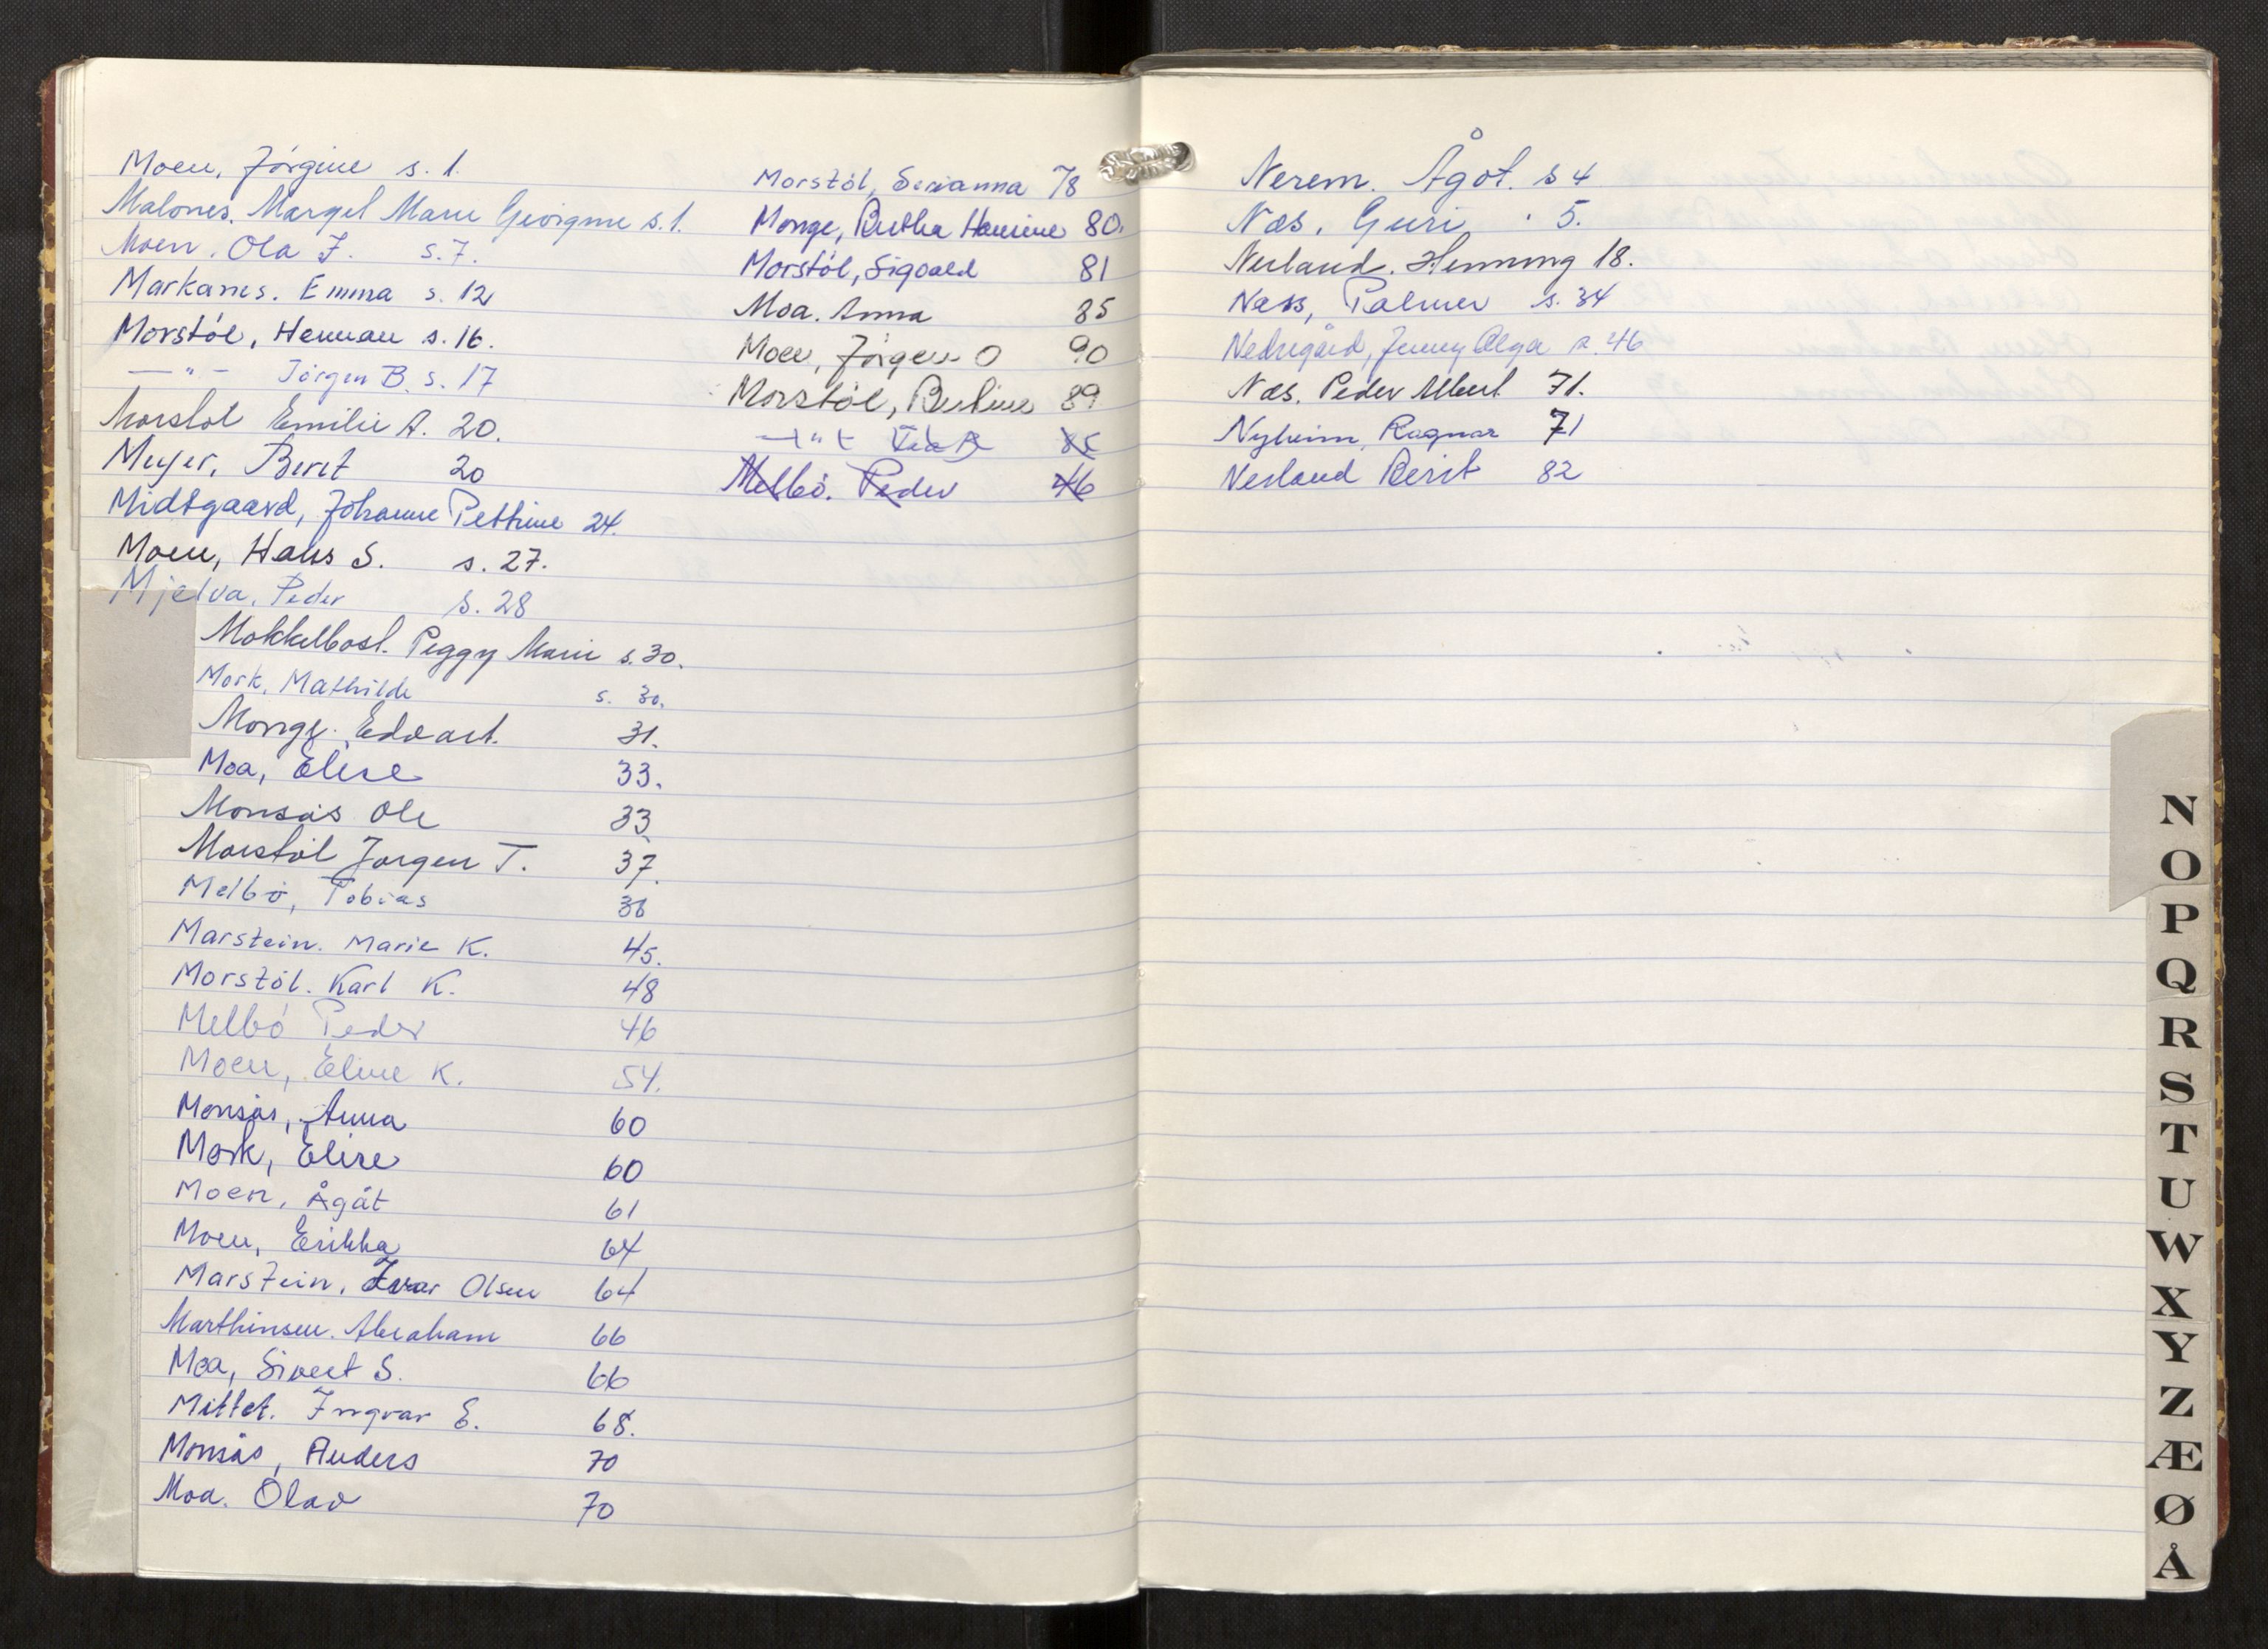 Moen, Jörgine s. 1.
Malones. Margel Marie Georgine s. 1.
Moen. Ola J. s. 7.
Markanes. Emma s. 12
Morstöl, Herman s. 16.
— " — Jörgen B. s. 17
Morstöl Emilie A. 20.
Meyer, Beret 20
Midtgaard, Johanne Pettrine 24.
Moen, Hans S. s. 27.
Mjelva, Peder s. 28
Mokkelbost. Peggy Marie s. 30.
Mork, Mathilde s. 30.
Monge. Edvart. 31.
Moa, Elise 33.
Monsås Ole 33
Morstöl Jorgen T. 37.
Melbö, Tobias 38
Marstein. Marie K. 45.
Morstöl. Karl K. 48
Melbö Peder 46
Moen, Eline K. 54.
Monsås, Anna 60
Mork, Elise 60
Moen, Ågåt 61
Moen, Erikka 64
Marstein, Ivar Olsen 64
Marthinsen. Abraham 66
Moa, Sivert S. 66
Mittet. Ingvar E. 68.
Monsås, Anders 70
Moa. Olav 70
Morstöl, Serianna 78
Monge, Bertha Hansine 80.
Morstöl, Sigvald 81
Moa. Anna 85
Moen, Jörgen O 90
Morstöl, Berline 89
— " — 85
Melbö. Peder 46
Nerem. Ågot. s 4
Næs. Guri 5.
Nerland. Henning 18.
Næss, Palmer s. 34
Nedregård, Jenny Olga s. 46
Næs. Peder Albert 71.
Nyheim, Ragnar 71
Nerland Berit 82
N
O
P
Q
R
S
T
U
W
X
Y
Z
Æ
Ø
Å